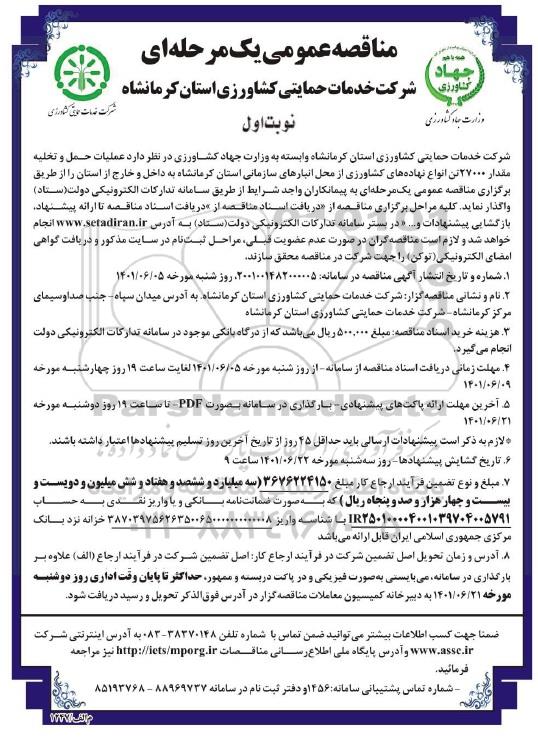 مناقصه عمومی یک مرحله‌ای
شرکت خدمات حمایتی کشاورزی استان کرمانشاه
نوبت اول
همه با هم
جهاد
کشاورزی
وزارت جهاد کشاورزی
شرکت خدمات حمایتی کشاورزی
شرکت خدمات حمایتی کشاورزی استان کرمانشاه وابسته به وزارت جهاد کشاورزی در نظر دارد عملیات حمل و تخلیه
مقدار ۲۷۰۰۰تن انواع نهاده‌های کشاورزی از محل انبارهای سازمانی استان کرمانشاه به داخل و خارج از استان را از طریق
برگزاری مناقصه عمومی یک‌مرحله‌ای به پیمانکاران واجد شرایط از طریق سامانه تدارکات الکترونیکی دولت(ستاد)
واگذار نماید. کلیه مراحل برگزاری مناقصه از «دریافت اسناد مناقصه از »دریافت اسناد مناقصه تا ارائه پیشنهاد،
بازگشایی پیشنهادات و... « در بستر سامانه تدارکات الکترونیکی دولت(ستاد) به آدرس www.setadiran.ir انجام
خواهد شد و لازم است مناقصه‌گران در صورت عدم عضویت قبلی، مراحل ثبت‌نام در سایت مذکور و دریافت گواهی
امضای الکترونیکی(توکن) را جهت شرکت در مناقصه محقق سازند.
۱. شماره و تاریخ انتشار آگهی مناقصه در سامانه: ۲۰۰۱۰۰۱۴۸۲۰۰۰۰۰۵، روز شنبه مورخه ۱۴۰۱/۰۶/۰۵
۲. نام و نشانی مناقصه‌گزار: شرکت خدمات حمایتی کشاورزی استان کرمانشاه. به آدرس میدان سپاه- جنب صداوسیمای
مرکز کرمانشاه-شرکت خدمات حمایتی کشاورزی استان کرمانشاه
۳. هزینه خرید اسناد مناقصه: مبلغ ۵۰۰,۰۰۰ ریال می‌باشد که از درگاه بانکی موجود در سامانه تدارکات الکترونیکی دولت
انجام می‌گیرد.
۴. مهلت زمانی دریافت اسناد مناقصه از سامانه- از روز شنبه مورخه ۱۴۰۱/۰۶/۰۵ لغایت ساعت ۱۹ روز چهارشنبه مورخه
۱۴۰۱/۰۶/۰۹
۵. آخرین مهلت ارائه پاکت‌های پیشنهادی- بارگذاری در سامانه بصورت PDF- تا ساعت ۱۹ روز دوشنبه مورخه
۱۴۰۱/۰۶/۲۱
*لازم به ذکر است پیشنهادات ارسالی باید حداقل ۴۵ روز از تاریخ آخرین روز تسلیم پیشنهادها اعتبار داشته باشند.
۶. تاریخ گشایش پیشنهادها-روز سه‌شنبه مورخه ۱۴۰۱/۰۶/۲۲ ساعت ۹
۷. مبلغ و نوع تضمین فرآیند ارجاع کار مبلغ ۳۶۷۶۲۲۴۱۵۰(سه میلیارد و ششصد و هفتاد و شش میلیون و دویست و
بیست و چهار هزار و صد و پنجاه ریال ) که به صورت ضمانت‌نامه بانکی و یا واریز نقدی به حساب
IR۲۵۰۱۰۰۰۰۴۰۰۱۰۳۹۷۰۴۰۰۵۷۹۱ با شناسه واریز ۳۸۷۰۳۹۷۵۶۲۶۳۵۰۰۶۵۰۰۰۰۰۰۰۰۰۰۰۰۸ خزانه نزد بانک
مرکزی جمهوری اسلامی ایران قابل ارائه می‌باشد
۸. آدرس و زمان تحویل اصل تضمین شرکت در فرآیند ارجاع کار: اصل تضمین شرکت در فرآیند ارجاع (الف) علاوه بر
بارگذاری در سامانه، می‌بایستی به‌صورت فیزیکی و در پاکت دربسته و ممهور، حداکثر تا پایان وقت اداری روز دوشنبه
مورخه ۱۴۰۱/۰۶/۲۱ به دبیرخانه کمیسیون معاملات مناقصه‌گزار در آدرس فوق‌الذکر تحویل و رسید دریافت شود.
ضمنا جهت کسب اطلاعات بیشتر می‌توانید ضمن تماس با شماره تلفن ۳۸۳۷۰۱۴۸-۰۸۳ به آدرس اینترنتی شرکت
www.assc.ir و آدرس پایگاه ملی اطلاع‌رسانی مناقصات http://iets/mporg.ir نیز مراجعه
فرمائید.
- شماره تماس پشتیبانی سامانه:۱۴۵۶و دفتر ثبت نام در سامانه ۸۸۹۶۹۷۳۷ - ۸۵۱۹۳۷۶۸
م/الف/۱۲۳۷